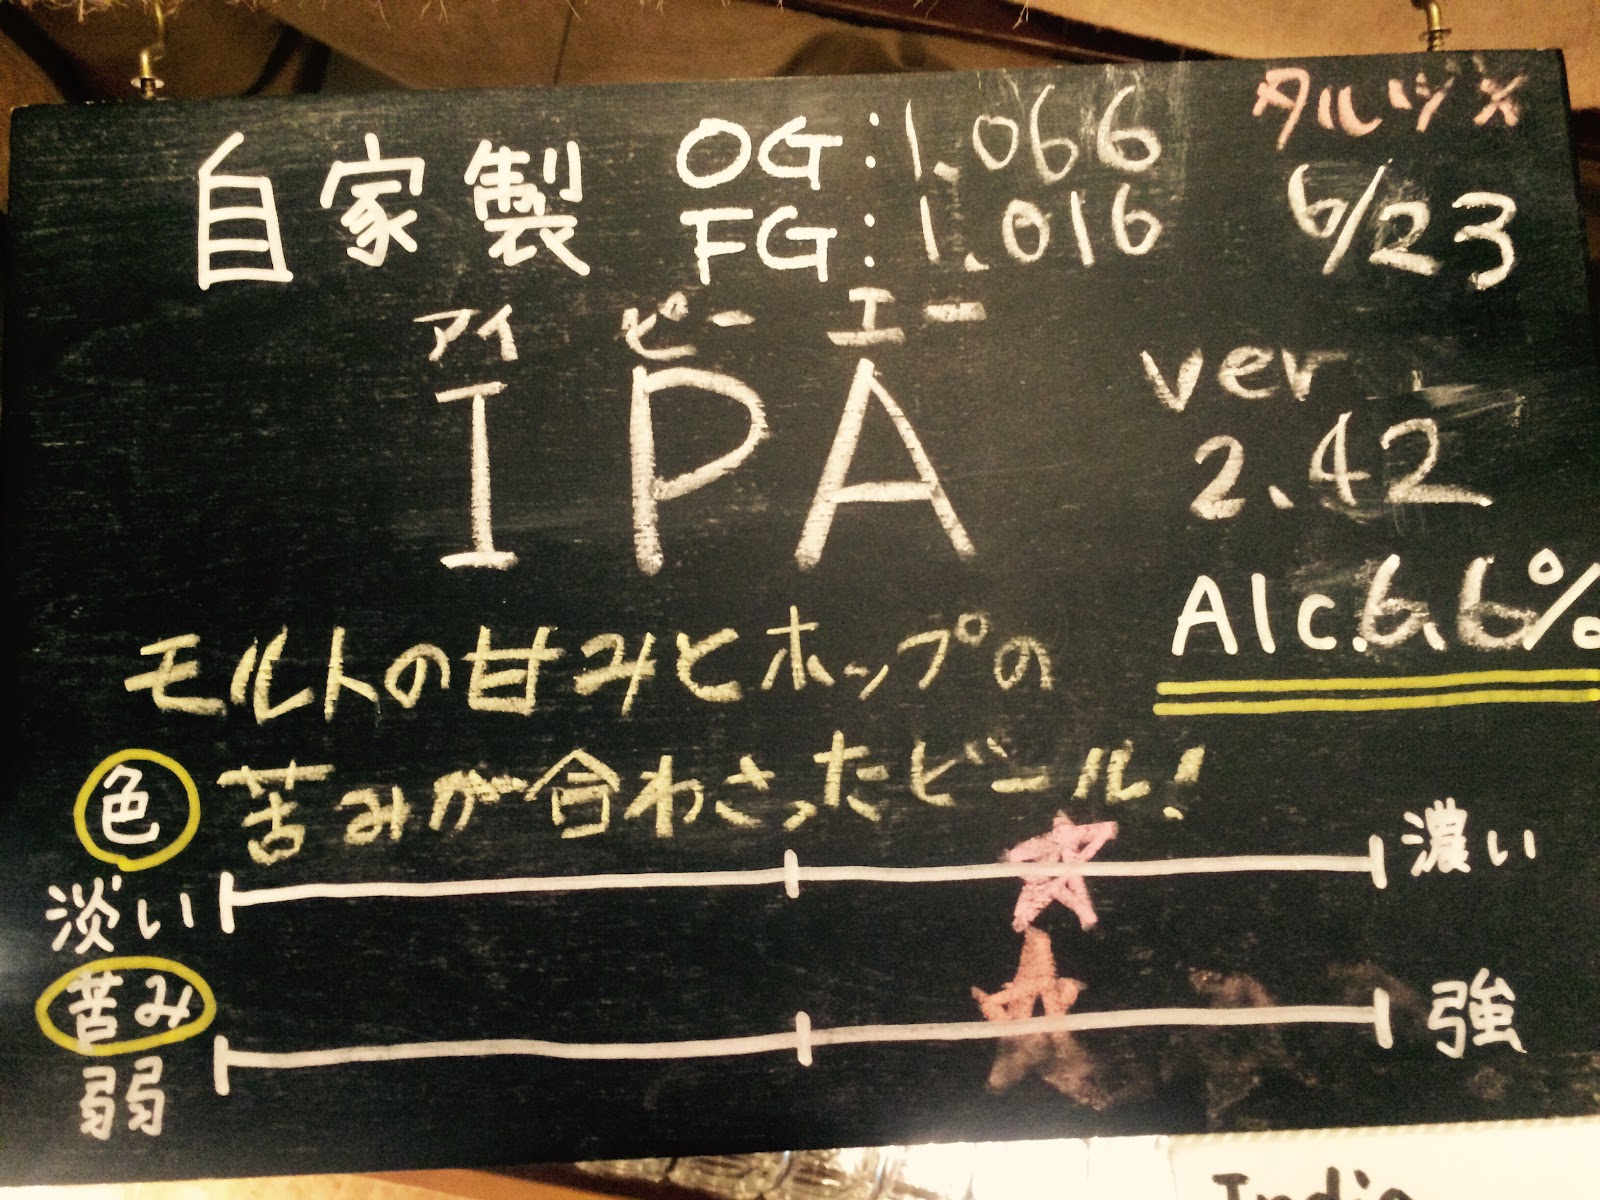 自家製
OG:1.066
FG:1.016
タルヅメ
6/23
アイ ピー エー
IPA
ver
2.42
Alc.6.6%
モルトの甘みとホップの
苦みが合わさったビール!
色
淡い 濃い
苦み
弱 強
India